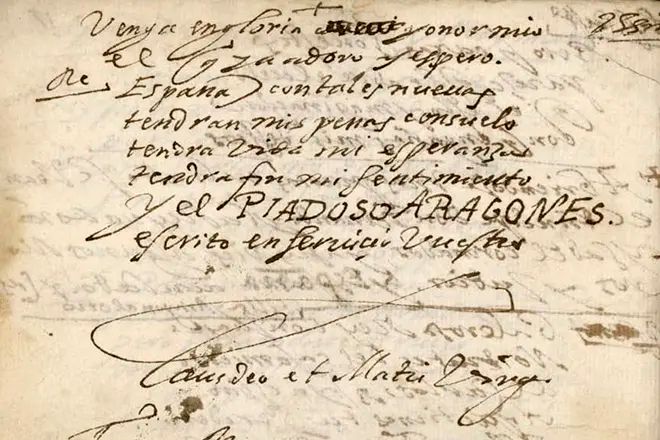 Venga en gloria y onor mio
el q̃ ya adoro y espero.
Re España) con tales nuevas
tendran mis penas consuelo
tendra vida mi esperanza
tendra fin mi sentimiento
y el PIADOSO ARAGONES.
escrito en servicio Vuestro
Laus deo et Matri Virg.